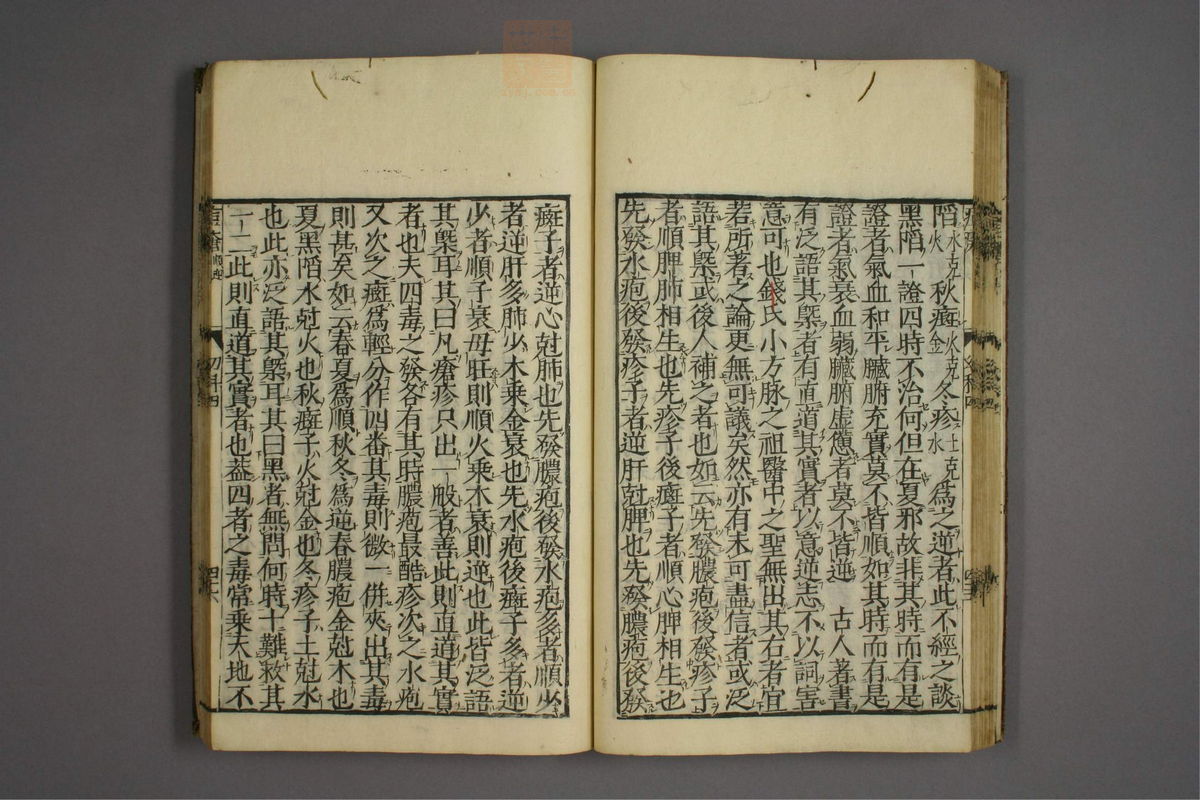 陷水克火秋癍火克金冬疹土克水為之逆者此不經之談
黑陷一證四時不治何但在夏邪故非其時而有是
證者氣血和平臟腑充實莫不皆順如其時而有是
證者氣衰血弱臟腑虛憊者莫不皆逆 古人著書
有泛語其槩者有直道其實者以意逆志不以詞害
意可也錢氏小方脉之祖醫中之聖無出其右者宜
若所著之論更無可議矣然亦有未可盡信者或泛
語其槩或後人補之者也如云先發膿疱後發疹子
者順脾肺相生也先疹子後癍子者順心脾相生也
先發水疱後發疹子者逆肝尅脾也先發膿疱後發
癍子者逆心尅肺也先發膿疱後發水疱多者順少
者逆肝多肺少木乘金衰也先水疱後癍子多者逆
少者順子衰母旺則順火乘木衰則逆也此皆泛語
其槩耳其曰凡瘡疹只出一般者善此則直道其實
者也夫四毒之發各有其時膿疱最酷疹次之水疱
又次之癍為輕分作四番其毒則微一併夾出其毒
則甚矣如云春夏為順秋冬為逆春膿疱金尅木也
夏黑陷水尅火也秋癍子火尅金也冬疹子土尅水
也此亦泛語其槩耳其曰黑者無問何時十難救其
一二此則直道其實者也盖四者之毒常乘天地不